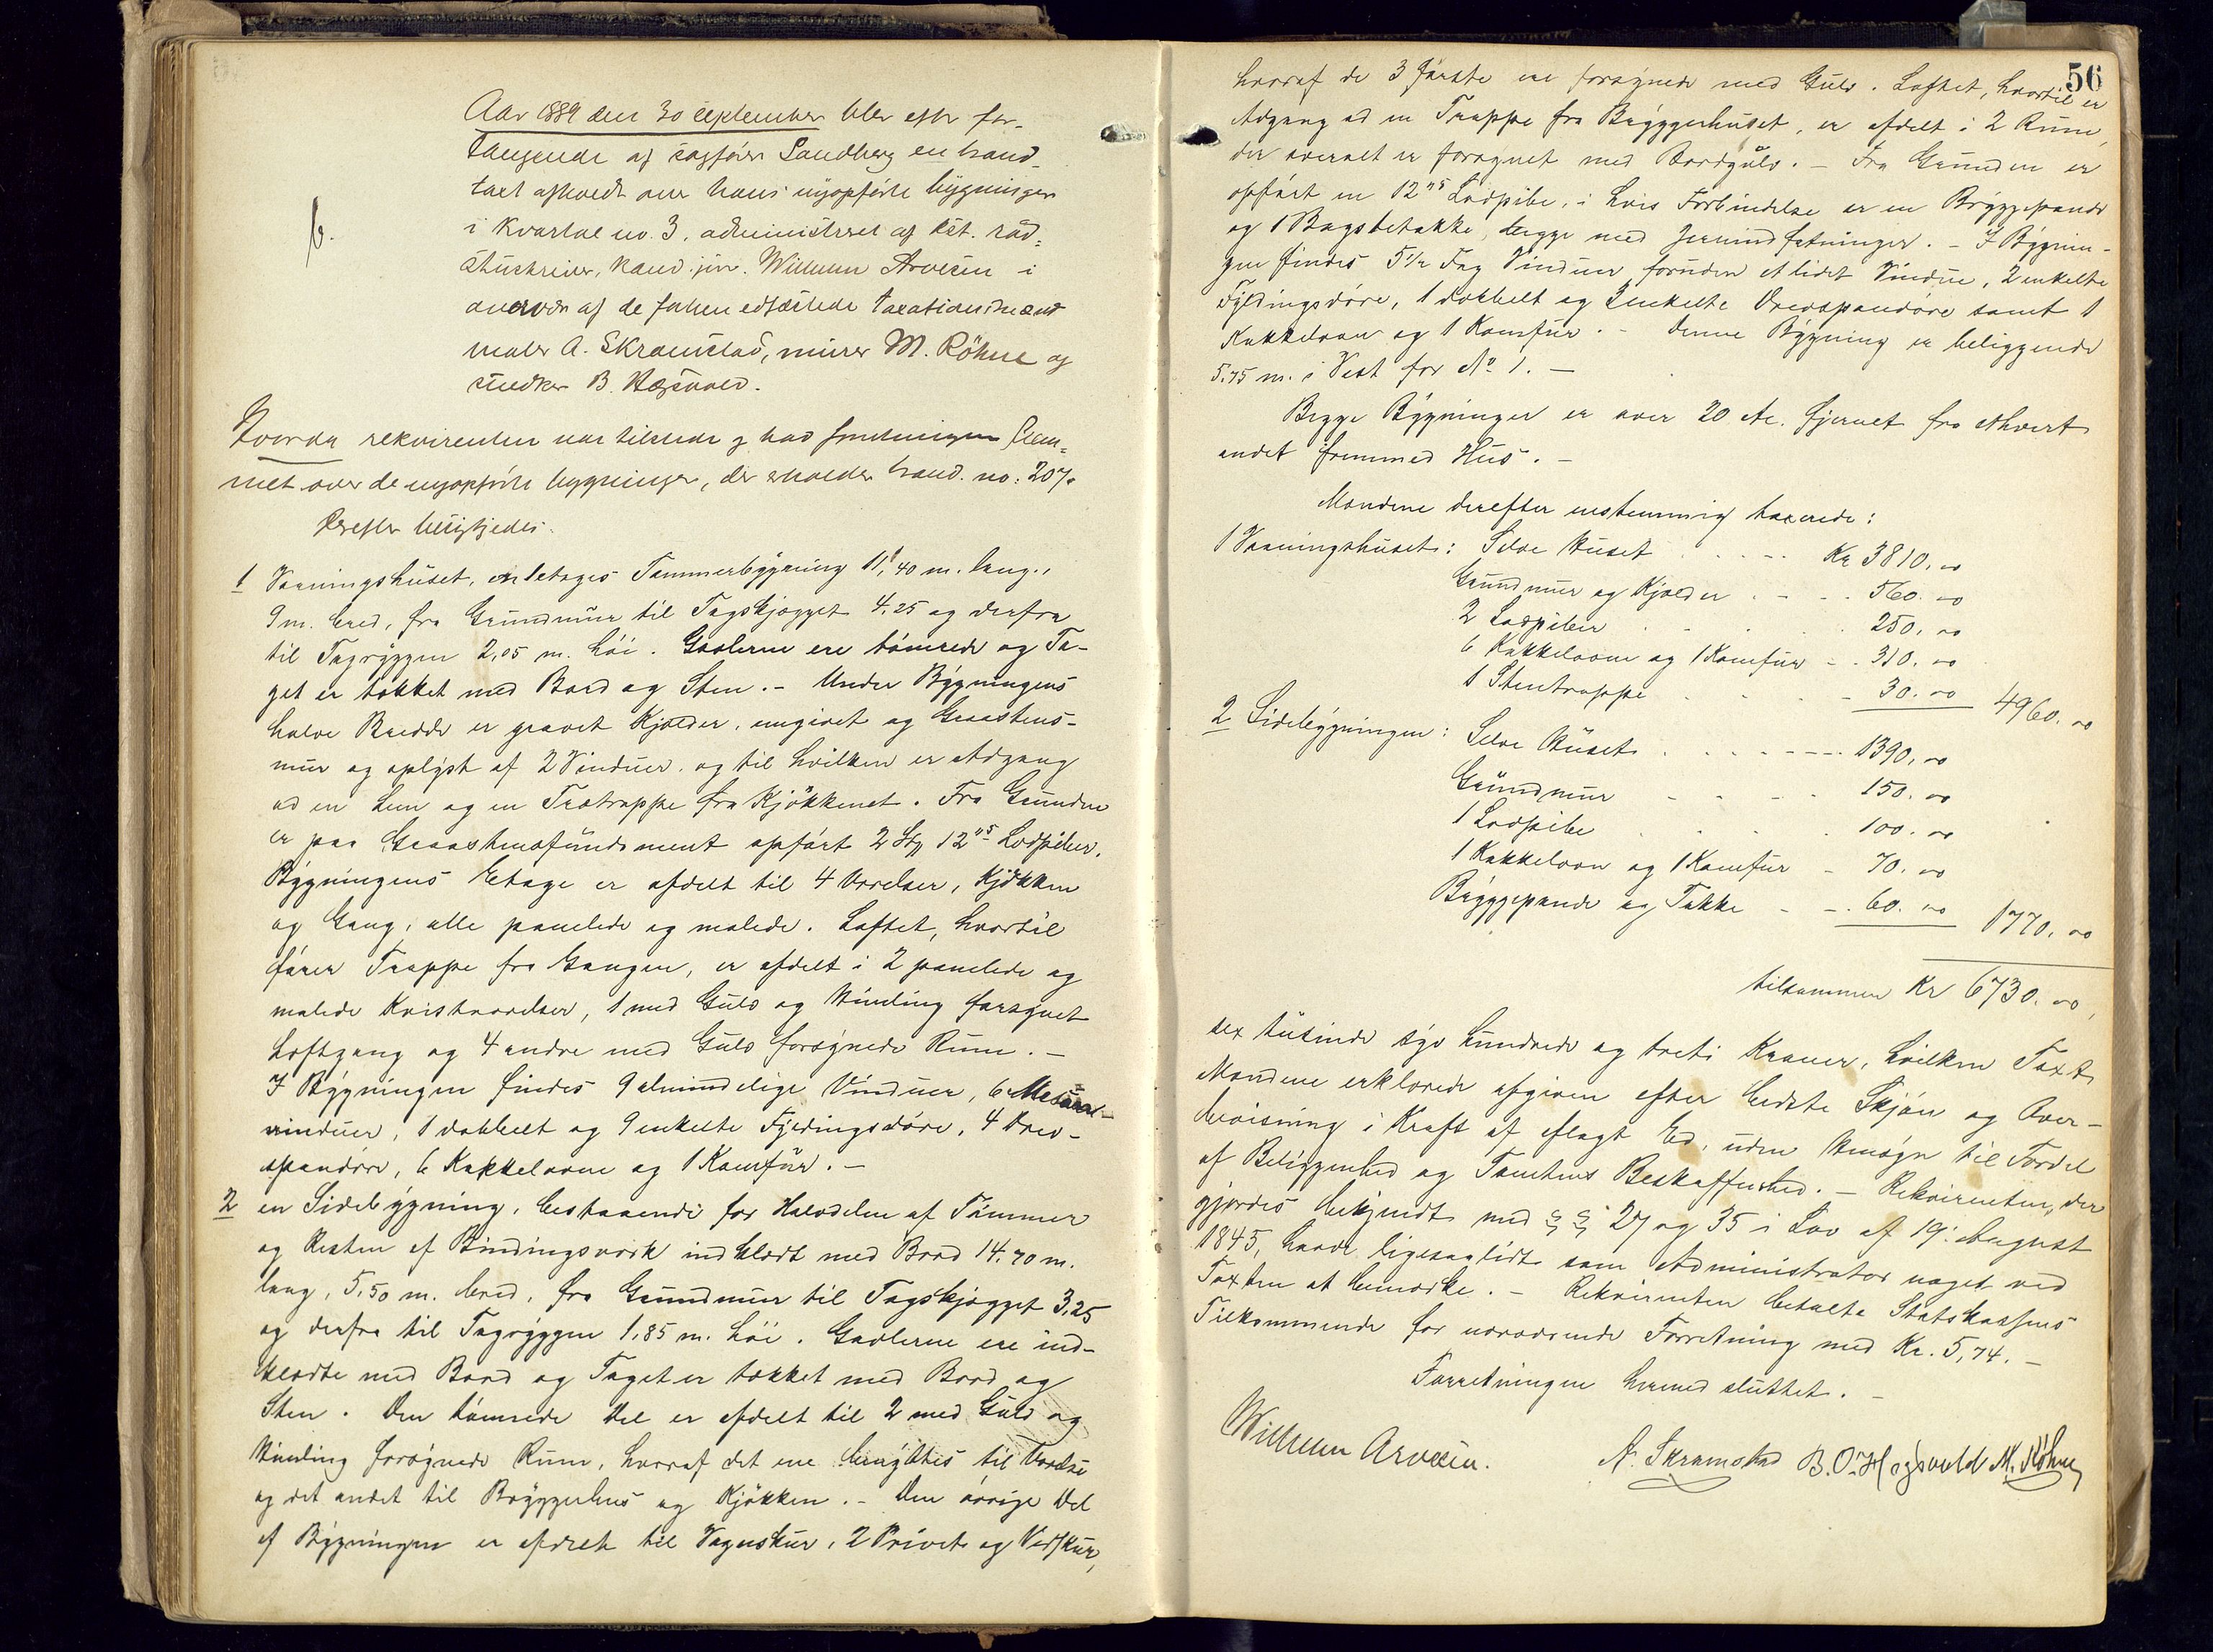 Aar 1889 den 30 september blev efter for-
langende af sagfører Sandberg en brand-
taxt afholdt over hans nyopførte bygninger
i Kvartal no. 3, administreret af kst. råd-
stuskriver, kand. jur. Wilhelm Arvesen i
overvær af de forhen edfæstede taxationsmænd
maler A. Skramstad, murer M. Röhne og
snedker B. Høgsveld.
b.
Hvorda rekvirenten var tilstede og bad forretningen frem-
met over de nyopførte bygninger, der erholder brand. no: 207.
Derefter besigtigedes:
1 Vaaningshuset, en 1 etages Tømmerbygning 11,40 m. lang,
9 m. bred, fra Grundmur til Tagskjægget 4,25 og derfra
til Tagryggen 2,05 m. høi. Gavlerne ere tømrede og Ta-
get er tækket med Bord og Sten. – Under Bygningens
halve Bredde er gravet Kjælder, omgivet og Graastens-
mur og oplyst af 2 Vinduer, og til hvilken er Adgang
ad en Lem og en Trætrappe fra Kjøkkenet. Fra Grunden
er paa Graastensfundament opført 2 Stk 12"s Lodpiber.
Bygningens Etage er afdelt til 4 Værelser, Kjøkken
og Gang, alle panelede og malede. Loftet, hvortil
fører Trappe fra Gangen, er afdelt i 2 panelede og
malede Kvistværelser, 1 med Gulv og Himling forsynet
Loftgang og 4 andre med Gulv forsynede Rum. –
I Bygningen findes 9 almindelige Vinduer, 6
vinduer, 1 dobbelt og 9 enkelte Fyldingsdøre, 4 Drev-
spandøre, 6 Kakkelovne og 1 Komfur. –
2 en Sidebygning, bestaaende for Halvdelen af Tømmer
og Resten af Bindingsværk indklædt med Bord 14,70 m.
lang, 5,50 m. bred, fra Grundmur til Tagskjægget 3,25
og derfra til Tagryggen 1,85 m. høi. Gavlerne ere ind-
klædte med Bord og Taget er tækket med Bord og
Sten. Den tømrede Del er afdelt til 2 med Gulv og
Himling forsynede Rum, hvoraf det ene benyttes til Værelse
og det andet til Bryggerhus og Kjøkken. – Den øvrige Del
af Bygningen er afdelt til Vognskur, 2 Priveter og Vedskur,
56
hvoraf de 3 første ere forsynede med Gulv. Loftet, hvortil er
Adgang ad en Trappe fra Bryggerhuset, er afdelt i 2 Rum,
der overalt er forsynet med Bordgulv. – Fra Grunden er
opført en 12"s Lodpibe, i hvis Forbindelse er en Bryggepande
og 1 Bagsletakke, begge med Jernindfatninger. – I Bygnin-
gen findes 5½ Fag Vinduer foruden et lidet Vindue, 2 enkelte
Fyldingsdøre, 1 dobbelt og 3 enkelte Drevspandøre samt 1
Kakkelovn og 1 Komfur. – Denne Bygning er beliggende
5,75 m. i Vest for No 1. –
Begge Bygninger er over 20 Al. fjernet fra ethvert
andet fremmed Hus. –
Mændene derefter enstemmig taxerede:
1 Vaaningshuset: Selve Huset . . . . Kr 3810,00
Grundmur og Kjælder . - - . 560.00
2 Lodpiber . . . . 250,00
6 Kakkelovne og 1 Komfur - . 310.00
1 Stentrappe . . . - 30.00 4960.00
2 Sidebygningen: Selve Huset . . . - - - - 1390,00
Grundmur - - - . 150.00
1 Lodpibe . . . . 100.00
1 Kakkelovn og 1 Komfur - 70.00
Bryggepande og Takke - - . 60.00 1770.00
tilsammen Kr 6730.00,
sex tusinde syv hundrede og treti Kroner, hvilken Taxt
Mændene erklærede afgiven efter bedste Skjøn og Over-
bevisning i Kraft af aflagt Ed, uden Hensyn til Fordel
af Beliggenhed og Tomtens Beskaffenhed. – Rekvirenten, der
gjordes bekjendt med §§ 27 og 35 i Lov af 19. August
1845, havde ligesaalidt som Administrator noget ved
Taxten at bemærke. – Rekvirenten betalte Statskassens
Tilkommende for nærværende Forretning med Kr. 5,74. –
Forretningen hermed sluttet. –
Wilhelm Arvesen. A. Skramstad B. O. Høgsveld M. Röhne